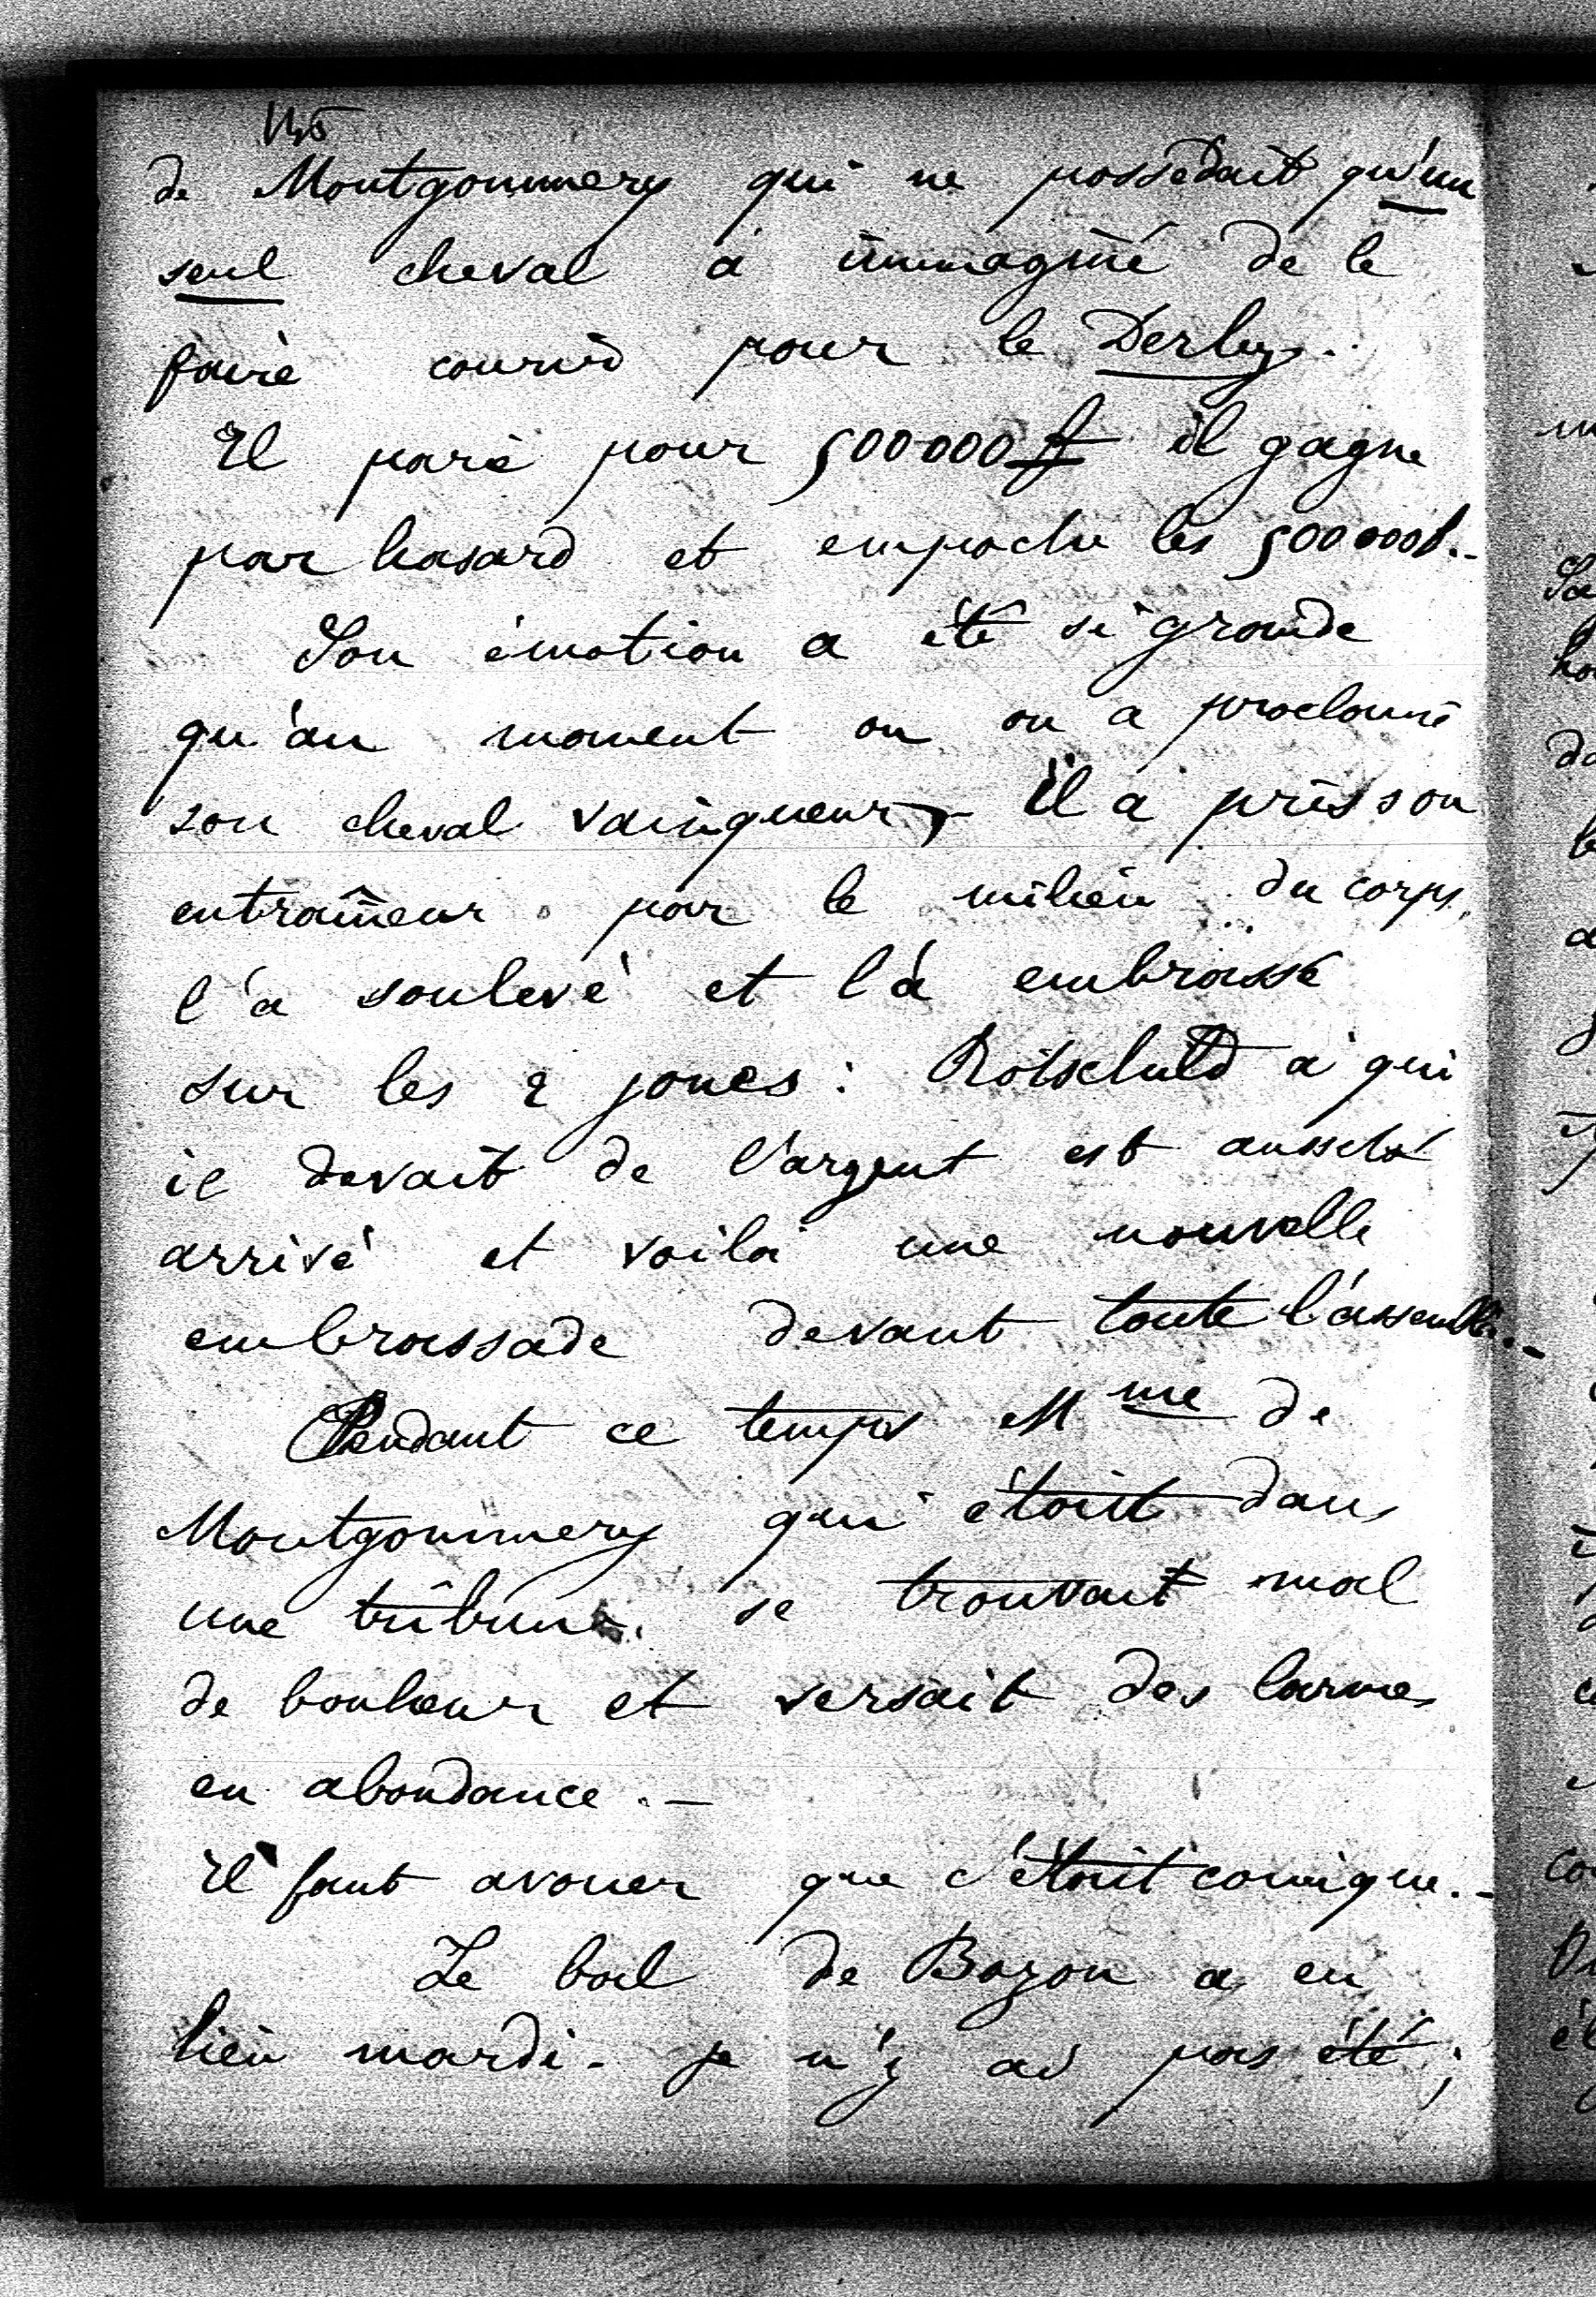 145
de Montgommery qui ne possédait qu'un
seul cheval a immaginé de le
faire courir pour le Derby.
Il parie pour 500000 f il gagne
par hasard et empoche les 500000 f. -
Son émotion a été si grande
qu'au moment ou on a proclamé
son cheval vainqueur, - il a pris son
entraîneur par le milieu du corps,
l'a soulevé et l'a embrassé
sur les 2 joues : Rotschild à qui
il devait de l'argent est aussitôt
arrivé et voilà une nouvelle
embrassade devant toute l'assemblée. -
Pendant ce temps Mme de
Montgommery qui était dans
une tribune se trouvait mal
de bonheur et versait des larmes
en abondance. -
Il faut avouer que c'était comique. -
Le bal de Bozon a eu
lieu mardi - je n'y ai pas été ;